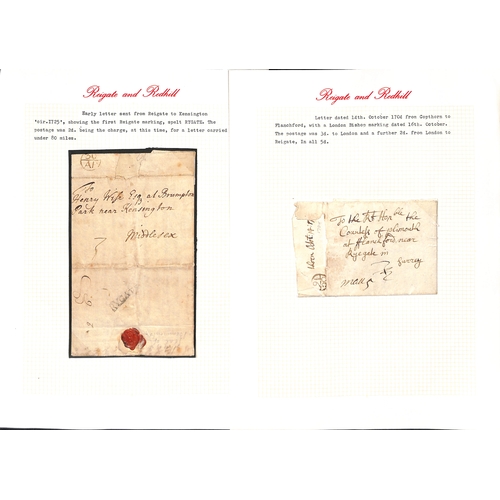 Reigate and Redhill
Early letter sent from Reigate to Kensington
"cir.1725", showing the first Reigate marking, spelt RYGATE. The
postage was 2d. being the charge, at this time, for a letter carried
under 80 miles.
To
Henry Wise Esq at Brumpton
Park near Kensington
Middlesex
RYGATE
Reigate and Redhill
Letter dated 14th. October 1704 from Copthorn to
Flanchford, with a London Bishop marking dated 16th. October.
The postage was 3d. to London and a further 2d. from London to
Reigate, in all 5d.
To the Rt Honble the
Countess of Plimouth
at fflanchford near
Ryegate in
Surrey